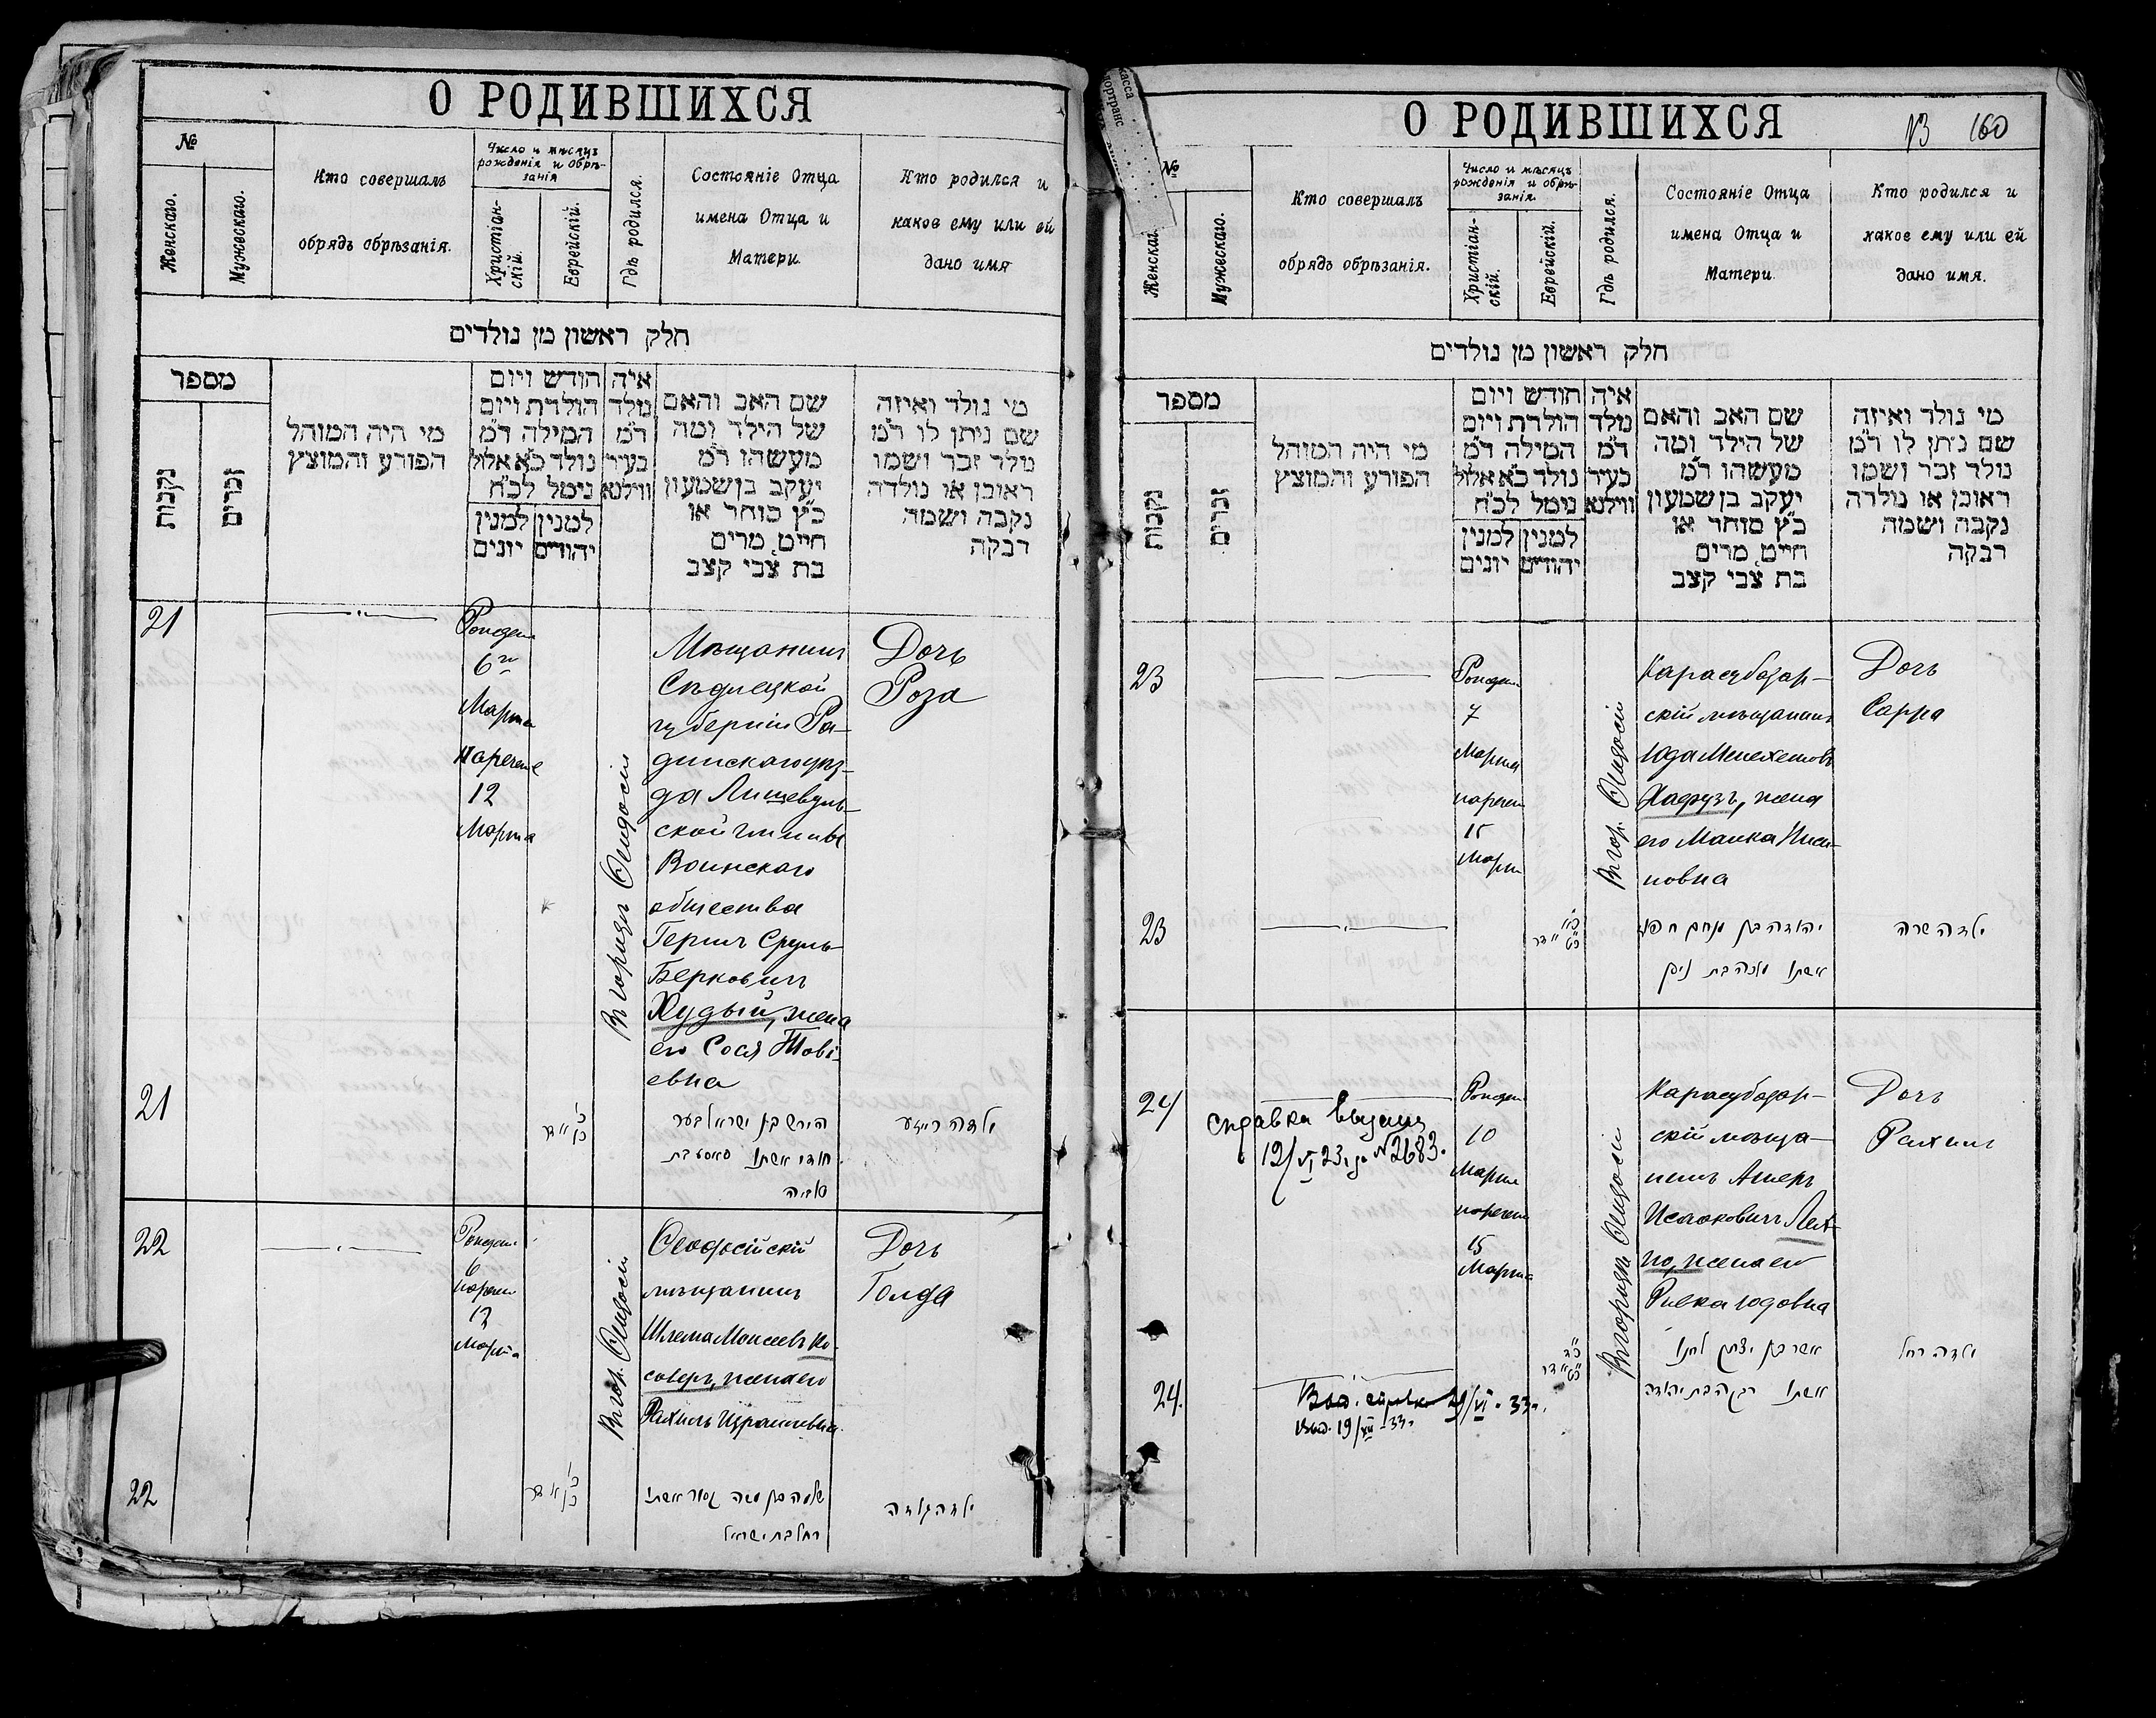 О РОДИВШИХСЯ
№
Женскаго.
Мужескаго.
Кто совершалъ
обрядъ обрѣзанія.
Число и мѣсяцъ
рожденія и Обрѣ-
занія
Христіан-
скій.
Еврейскій.
Гдѣ родился.
Состояніе Отца
имена Отца и
Матери.
Кто родился и
какое ему или ей
дано имя
חלק ראשון מן נולדים
מספר
נקבות
זכרים
מי היה המוהל
הפורע והמוצץ
חודש ויום
הולדת ויום
המילה ד״מ
נולד כ״א אלול
נימל לכ״ח
למנין
יהודים
למנין
יונים
איה
נולד
ד״מ
בעיר
ווילנא
שם האב והאם
של הילד ומה
מעשהו ד״מ
יעקב בן שמעון
כ״ץ סוחר או
חייט, מרים
בת צבי קצב
מי נולד ואיזה
שם ניתן לו ד״מ
נולד זכר ושמו
ראובן או נולדה
נקבה ושמה
רבקה
21
Рожден
6го
Марта
Наречена
12
Марта
Въ городѣ Ѳеодосіи
Мѣщанинъ
Сѣдлецкой
губерніи Ра-
динскаго уѣз-
да
ской гмины
Воинскаго
общества
Гершъ Сруль
Берковичъ
Худый, жена
его Сося Товi-
евна
Дочь
Роза
21
הירש בן ישראל בער
חודי אשתו סאסע בת
טוביה
ילדה רייזע
22
Рожден
6
наречен
12
Марта
Въ гор. Ѳеодосіи
Ѳеодосійскій
мѣщанинъ
Шлема Моисеевъ Ко-
соверъ, жена его
Рахиль Израилевна
Дочь
Голда
22
שלמה בן משה
רחל בת ישראל
ילדה גולדה
О РОДИВШИХСЯ
160
№
Женскаго
Мужескаго.
Кто совершалъ
обрядъ обрѣзанія.
Число и мѣсяцъ
рожденія и обрѣ-
занія.
Христіан-
скій.
Еврейскій.
Гдѣ родился.
Состояніе Отца
имена Отца и
Матери.
Кто родился и
какое ему или ей
дано имя.
חלק ראשון מן נולדים
מספר
נקבות
זכרים
מי היה המוהל
הפורע והמוצץ
חודש ויום
הולדת ויום
המילה ד״מ
נולד כ״א אלול
נימל לכ״ח
למנין
יהודים
למנין
יונים
איה
נולד
ד״מ
בעיר
ווילנא
שם האב והאם
של הילד ומה
מעשהו ד״מ
יעקב בן שמעון
כ״ץ סוחר או
חייט, מרים
בת צבי קצב
מי נולד ואיזה
שם ניתן לו ד״מ
נולד זכר ושמו
ראובן או נולדה
נקבה ושמה
רבקה
23
Рожден
7
Марта
наречен
15
Марта
Въ гор. Ѳеодосіи
Карасубазар-
скій мѣщанинъ
Юда Менехемовъ
Хафузъ, жена
его Малка Ниси-
новна
Дочь
Сарра
23
יהודה בן מנחם חפוז
אשתו מלכה בת ניסן
ילדה שרה
24
справка выдана
12/VI 23 г. № 2683.
Рожден
10
Марта
наречен
15
Марта
Въ городѣ Ѳеодосіи
Карасубазар-
скій мѣща-
нинъ Ашеръ
Исааковичъ Лех-
но, жена его
Ривка Юдовна
Дочь
Рахиль
24.
Выд. справка 29/VI - 33 г.
Выд. 19/XII - 33 г.
אשר בן יצחק לחנו
אשתו רבקה בת יהודה
ילדה רחל